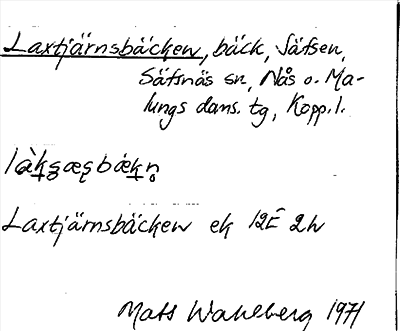 Laxtjärnsbäcken, bäck, Säfsen,
Säfsnäs sn, Nås o. Ma-
lungs doms. tg, Kopp. l.
Laxtjärnsbäcken ek 12E 2h
Mats Wahlberg 1971